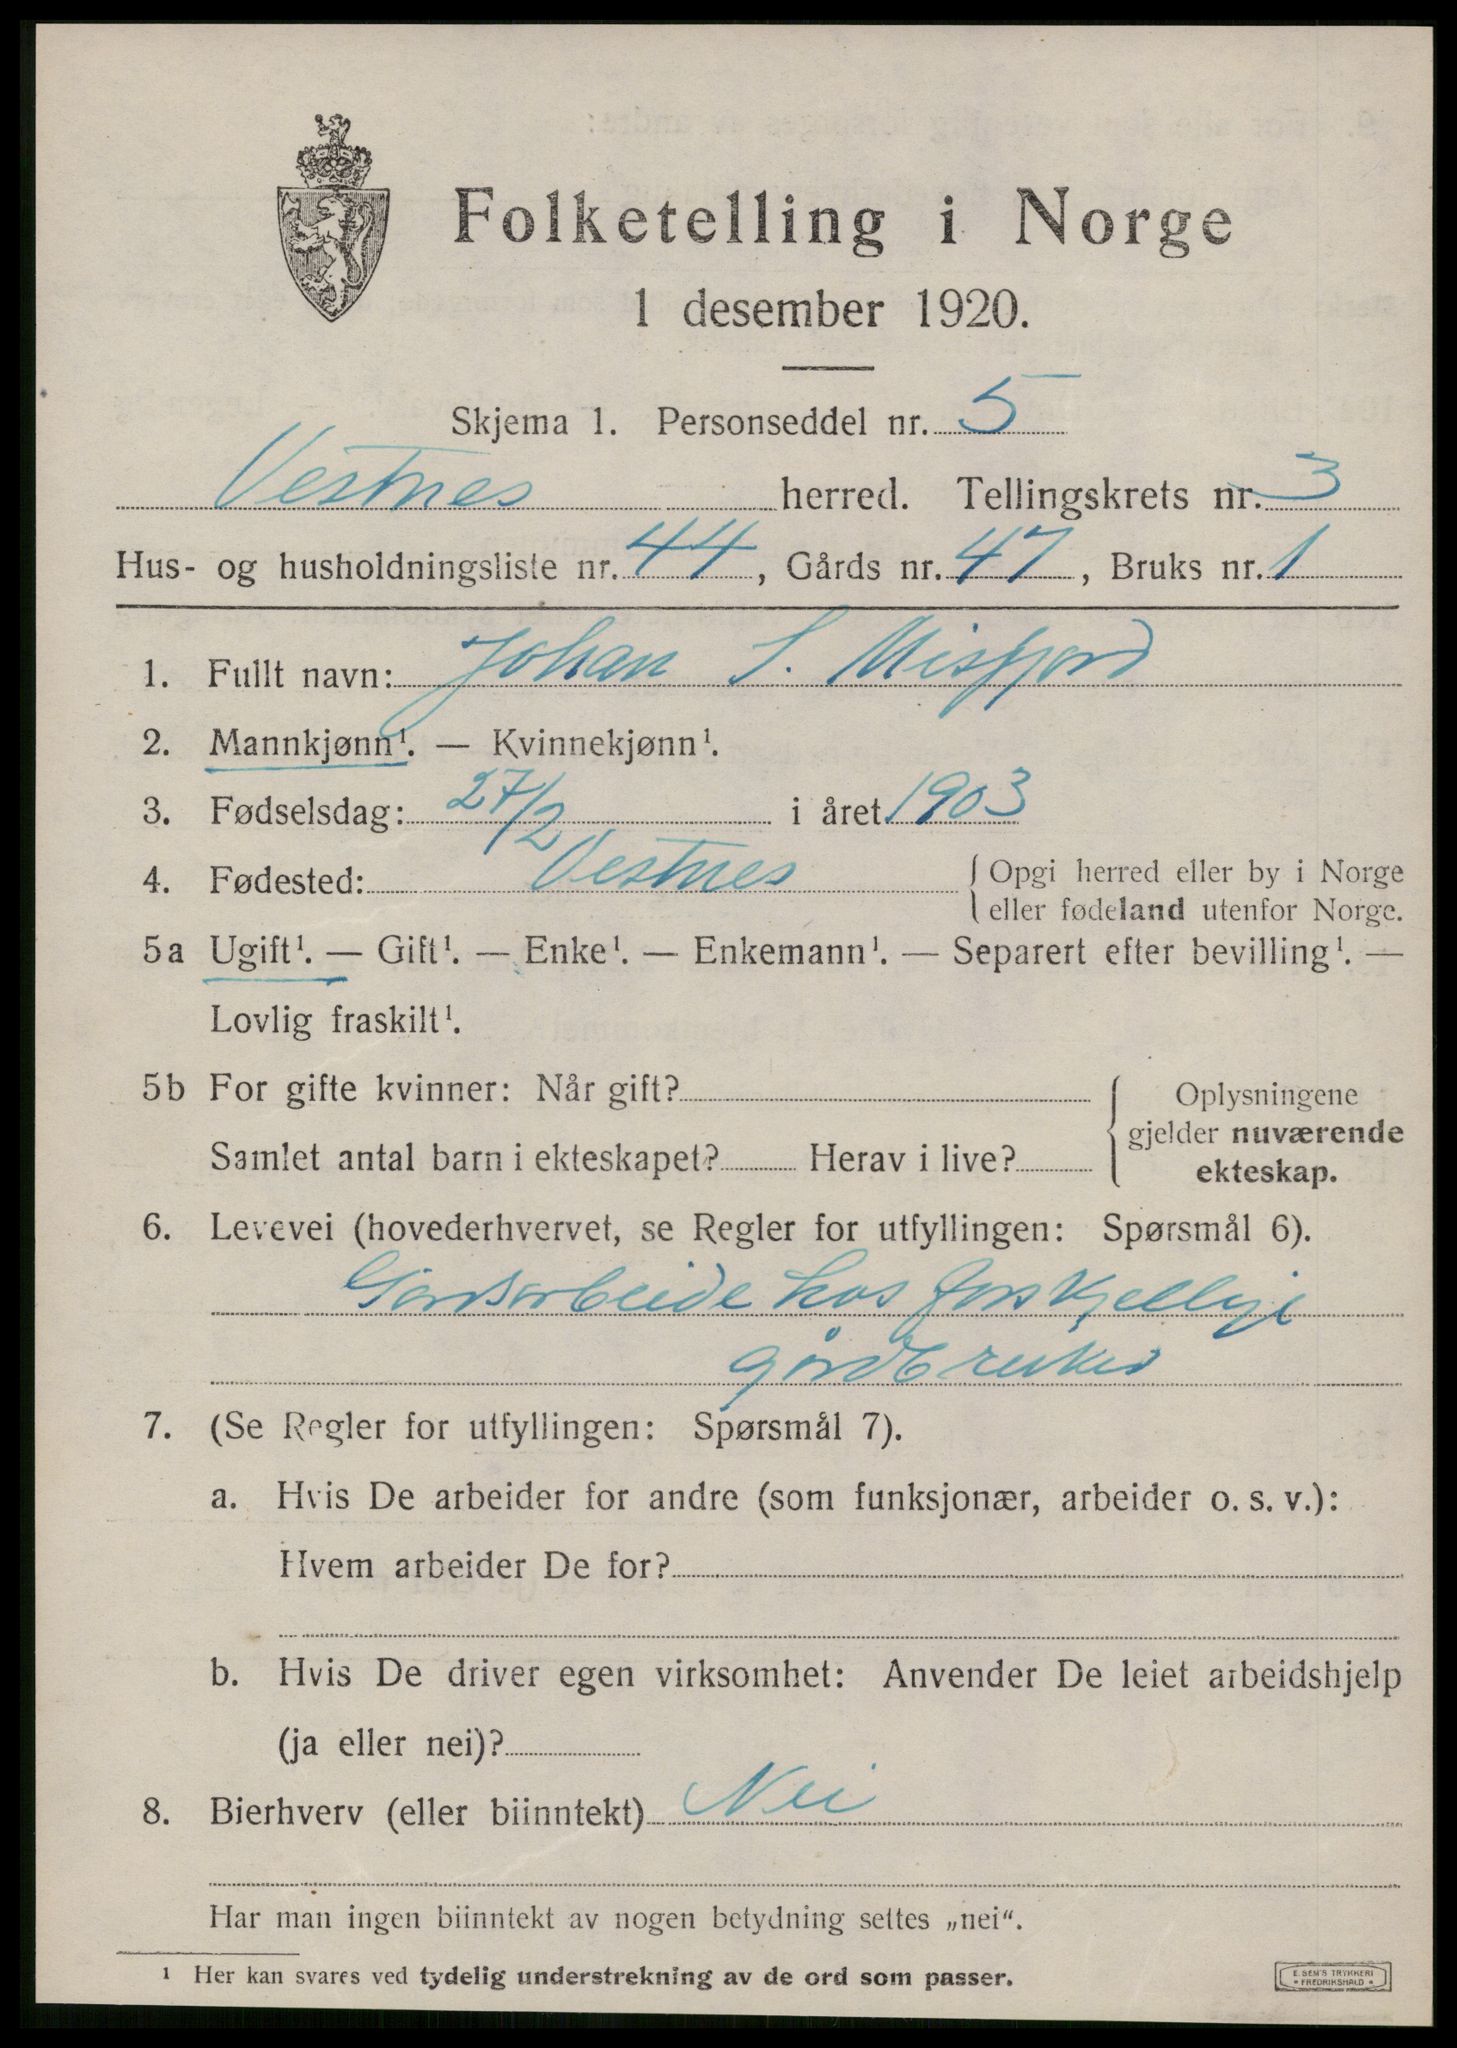 Folketelling i Norge
1 desember 1920.
Skjema 1. Personseddel nr. 5
Vestnes herred. Tellingskrets nr. 3
Hus- og husholdningsliste nr. 44, Gårds nr. 47, Bruks nr. 1
1. Fullt navn: Johan S. Misfjord
2. Mannkjønn¹. — Kvinnekjønn¹.
3. Fødselsdag: 27/2 i året 1903
4. Fødested: Vestnes { Opgi herred eller by i Norge
eller fødeland utenfor Norge.
5a Ugift¹. — Gift¹. — Enke¹. — Enkemann¹. — Separert efter bevilling¹. —
Lovlig fraskilt¹.
5b For gifte kvinner: Når gift?
Samlet antal barn i ekteskapet? Herav i live?
{ Oplysningene
gjelder nuværende
ekteskap.
6. Levevei (hovederhvervet, se Regler for utfyllingen: Spørsmål 6).
Gardsarbeide hos forskjellige
gårdbruker
7. (Se Regler for utfyllingen: Spørsmål 7).
a. Hvis De arbeider for andre (som funksjonær, arbeider o. s. v.):
Hvem arbeider De for?
b. Hvis De driver egen virksomhet: Anvender De leiet arbeidshjelp
(ja eller nei)?
8. Bierhverv (eller biinntekt) Nei
Har man ingen biinntekt av nogen betydning settes „nei“.
¹ Her kan svares ved tydelig understrekning av de ord som passer.
E. SEM'S TRYKKERI
* FREDRIKSHALD *